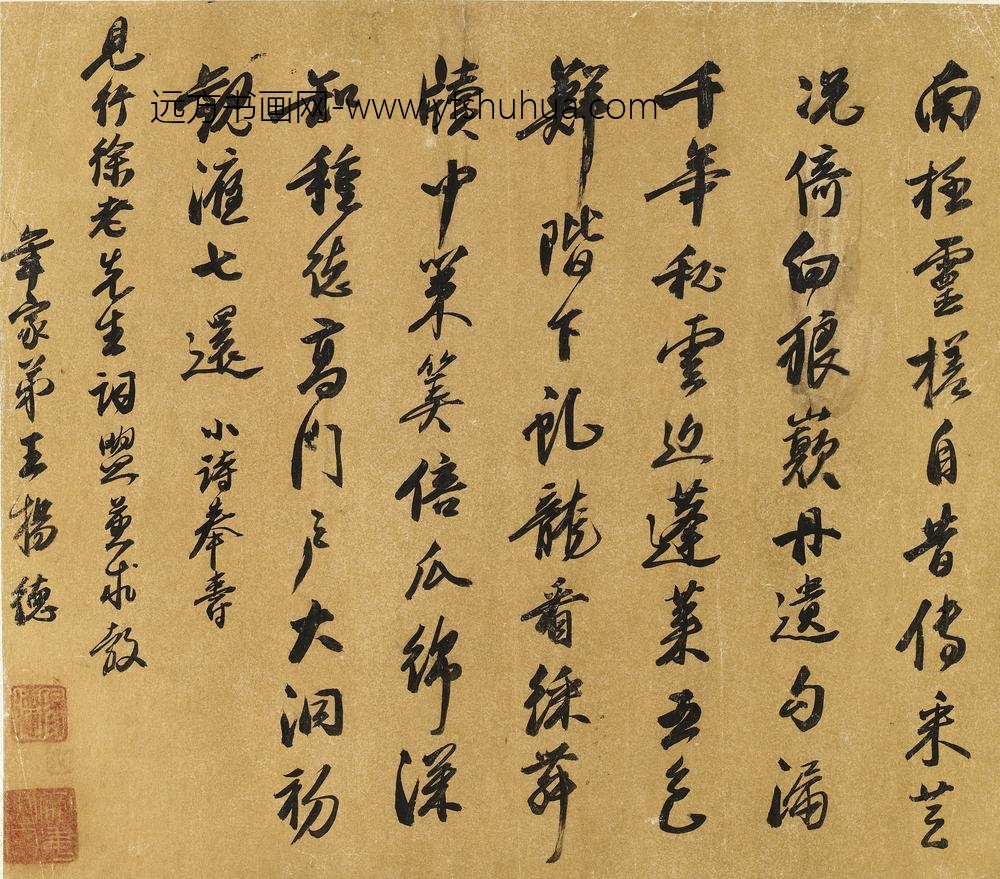 南極靈槎自昔傳采芝
况倚白狼巅丹遺勾漏
千年秘雲近蓬萊五色
鮮階下虬龍看綵舞
牘中策筴倍瓜綿深
知種德高門戶大洄初
觀滙七還小詩奉壽
見行徐老先生詞盟並求教
年家弟王揚德
远方书画网-www.yfshuhua.com